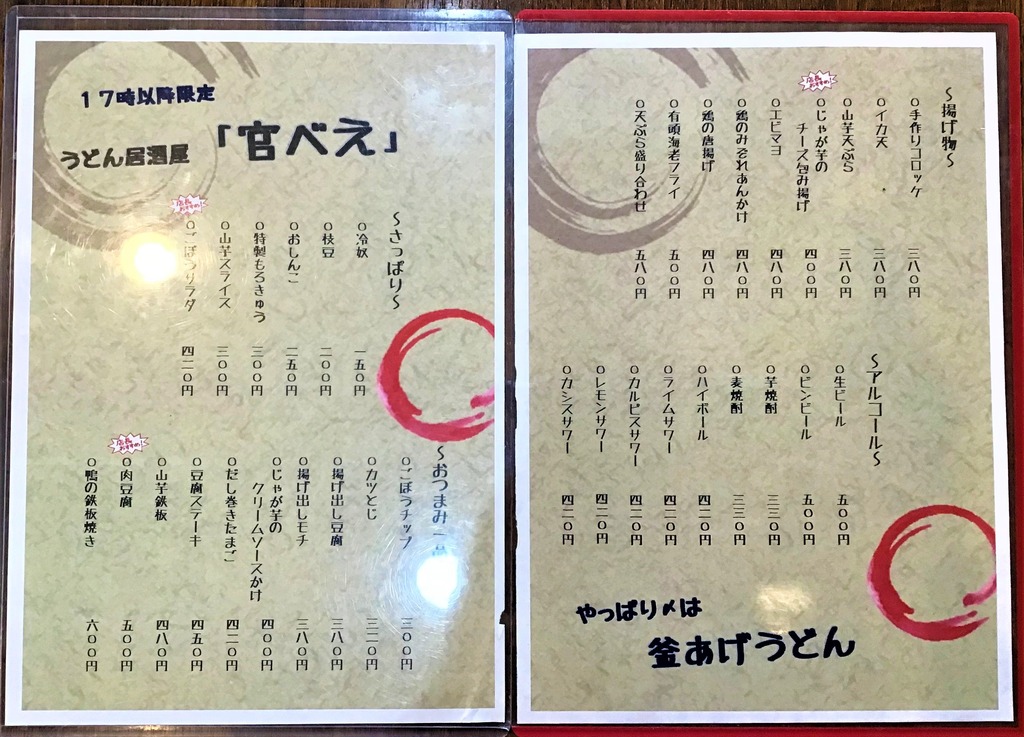 17時以降限定
うどん居酒屋
「官べえ」
～さっぱり～
○冷奴 一五〇円
○枝豆 二〇〇円
○おしんこ 二五〇円
○特製もろきゅう 三〇〇円
○山芋スライス 三〇〇円
店長おすすめ!
○ごぼうサラダ 四二〇円
～おつまみ
○ごぼうチップ 三〇〇円
○カツとじ 三二〇円
○揚げ出し豆腐 三八〇円
○揚げ出しモチ 三八〇円
○じゃが芋の
クリームソースかけ 四〇〇円
○だし巻きたまご 四二〇円
○豆腐ステーキ 四五〇円
○山芋鉄板 四八〇円
店長おすすめ!
○肉豆腐 五〇〇円
○鴨の鉄板焼き 六〇〇円
～揚げ物～
○手作りコロッケ 三八〇円
○イカ天 三八〇円
○山芋天ぷら 三八〇円
店長おすすめ!
○じゃが芋の
チーズ包み揚げ 四〇〇円
○エビマヨ 四八〇円
○鶏のみぞれあんかけ 四八〇円
○鶏の唐揚げ 四八〇円
○有頭海老フライ 五〇〇円
○天ぷら盛り合わせ 五八〇円
～アルコール～
○生ビール 五〇〇円
○ビンビール 五〇〇円
○芋焼酎 三三〇円
○麦焼酎 三三〇円
○ハイボール 四二〇円
○ライムサワー 四二〇円
○カルピスサワー 四二〇円
○レモンサワー 四二〇円
○カシスサワー 四二〇円
やっぱり〆は
釜あげうどん